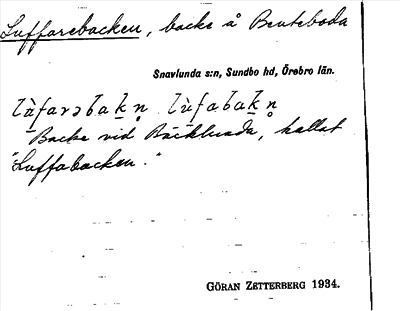 Luffarebacken, backe å Bruteboda
Snavlunda s:n, Sundbo hd, Örebro län.
Backe vid Bäcklunda, kallat
"Luffabacken."
GÖRAN ZETTERBERG 1934.